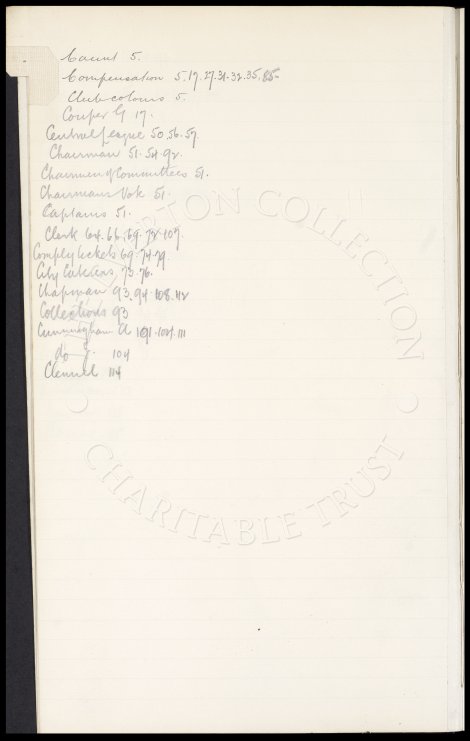 Caunt 5.
Compensation 5.17.27.31-32.35.85-
Club colours 5.
Couper G 17.
Central League 50.56.57.
Chairman 51.54.92.
Chairmen of Committees 51.
Chairmans Vote 51.
Captains 51.
Clerk 64.66.69.72.107.
Comply tickets 69.74.79.
City Caterers 73.76.
Chapman 93.94.108.112
Collections 93
Cunningham A 101.104.111
do J. 104
Clennel 114
EVERTON COLLECTION
CHARITABLE TRUST